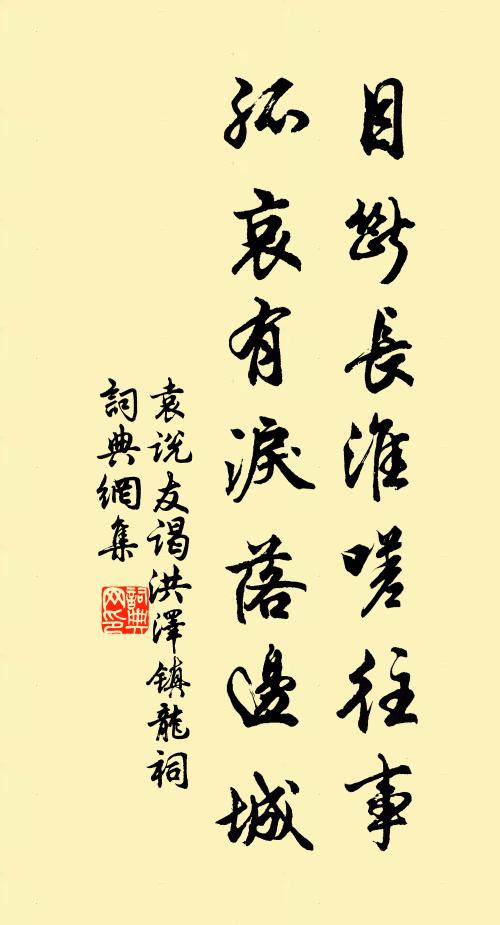 目斷長淮嗟往事
孤哀有淚落邊城
袁説友謁洪澤鎮龍祠
詞典網集
詞典网印